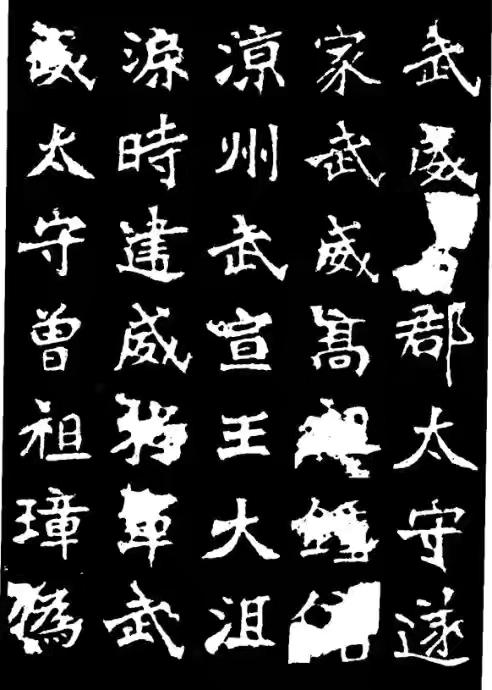 武威郡太守遂
家武威髙祖鍾
涼州武宣王大沮
渠時建威將軍武
威太守曾祖璋偽